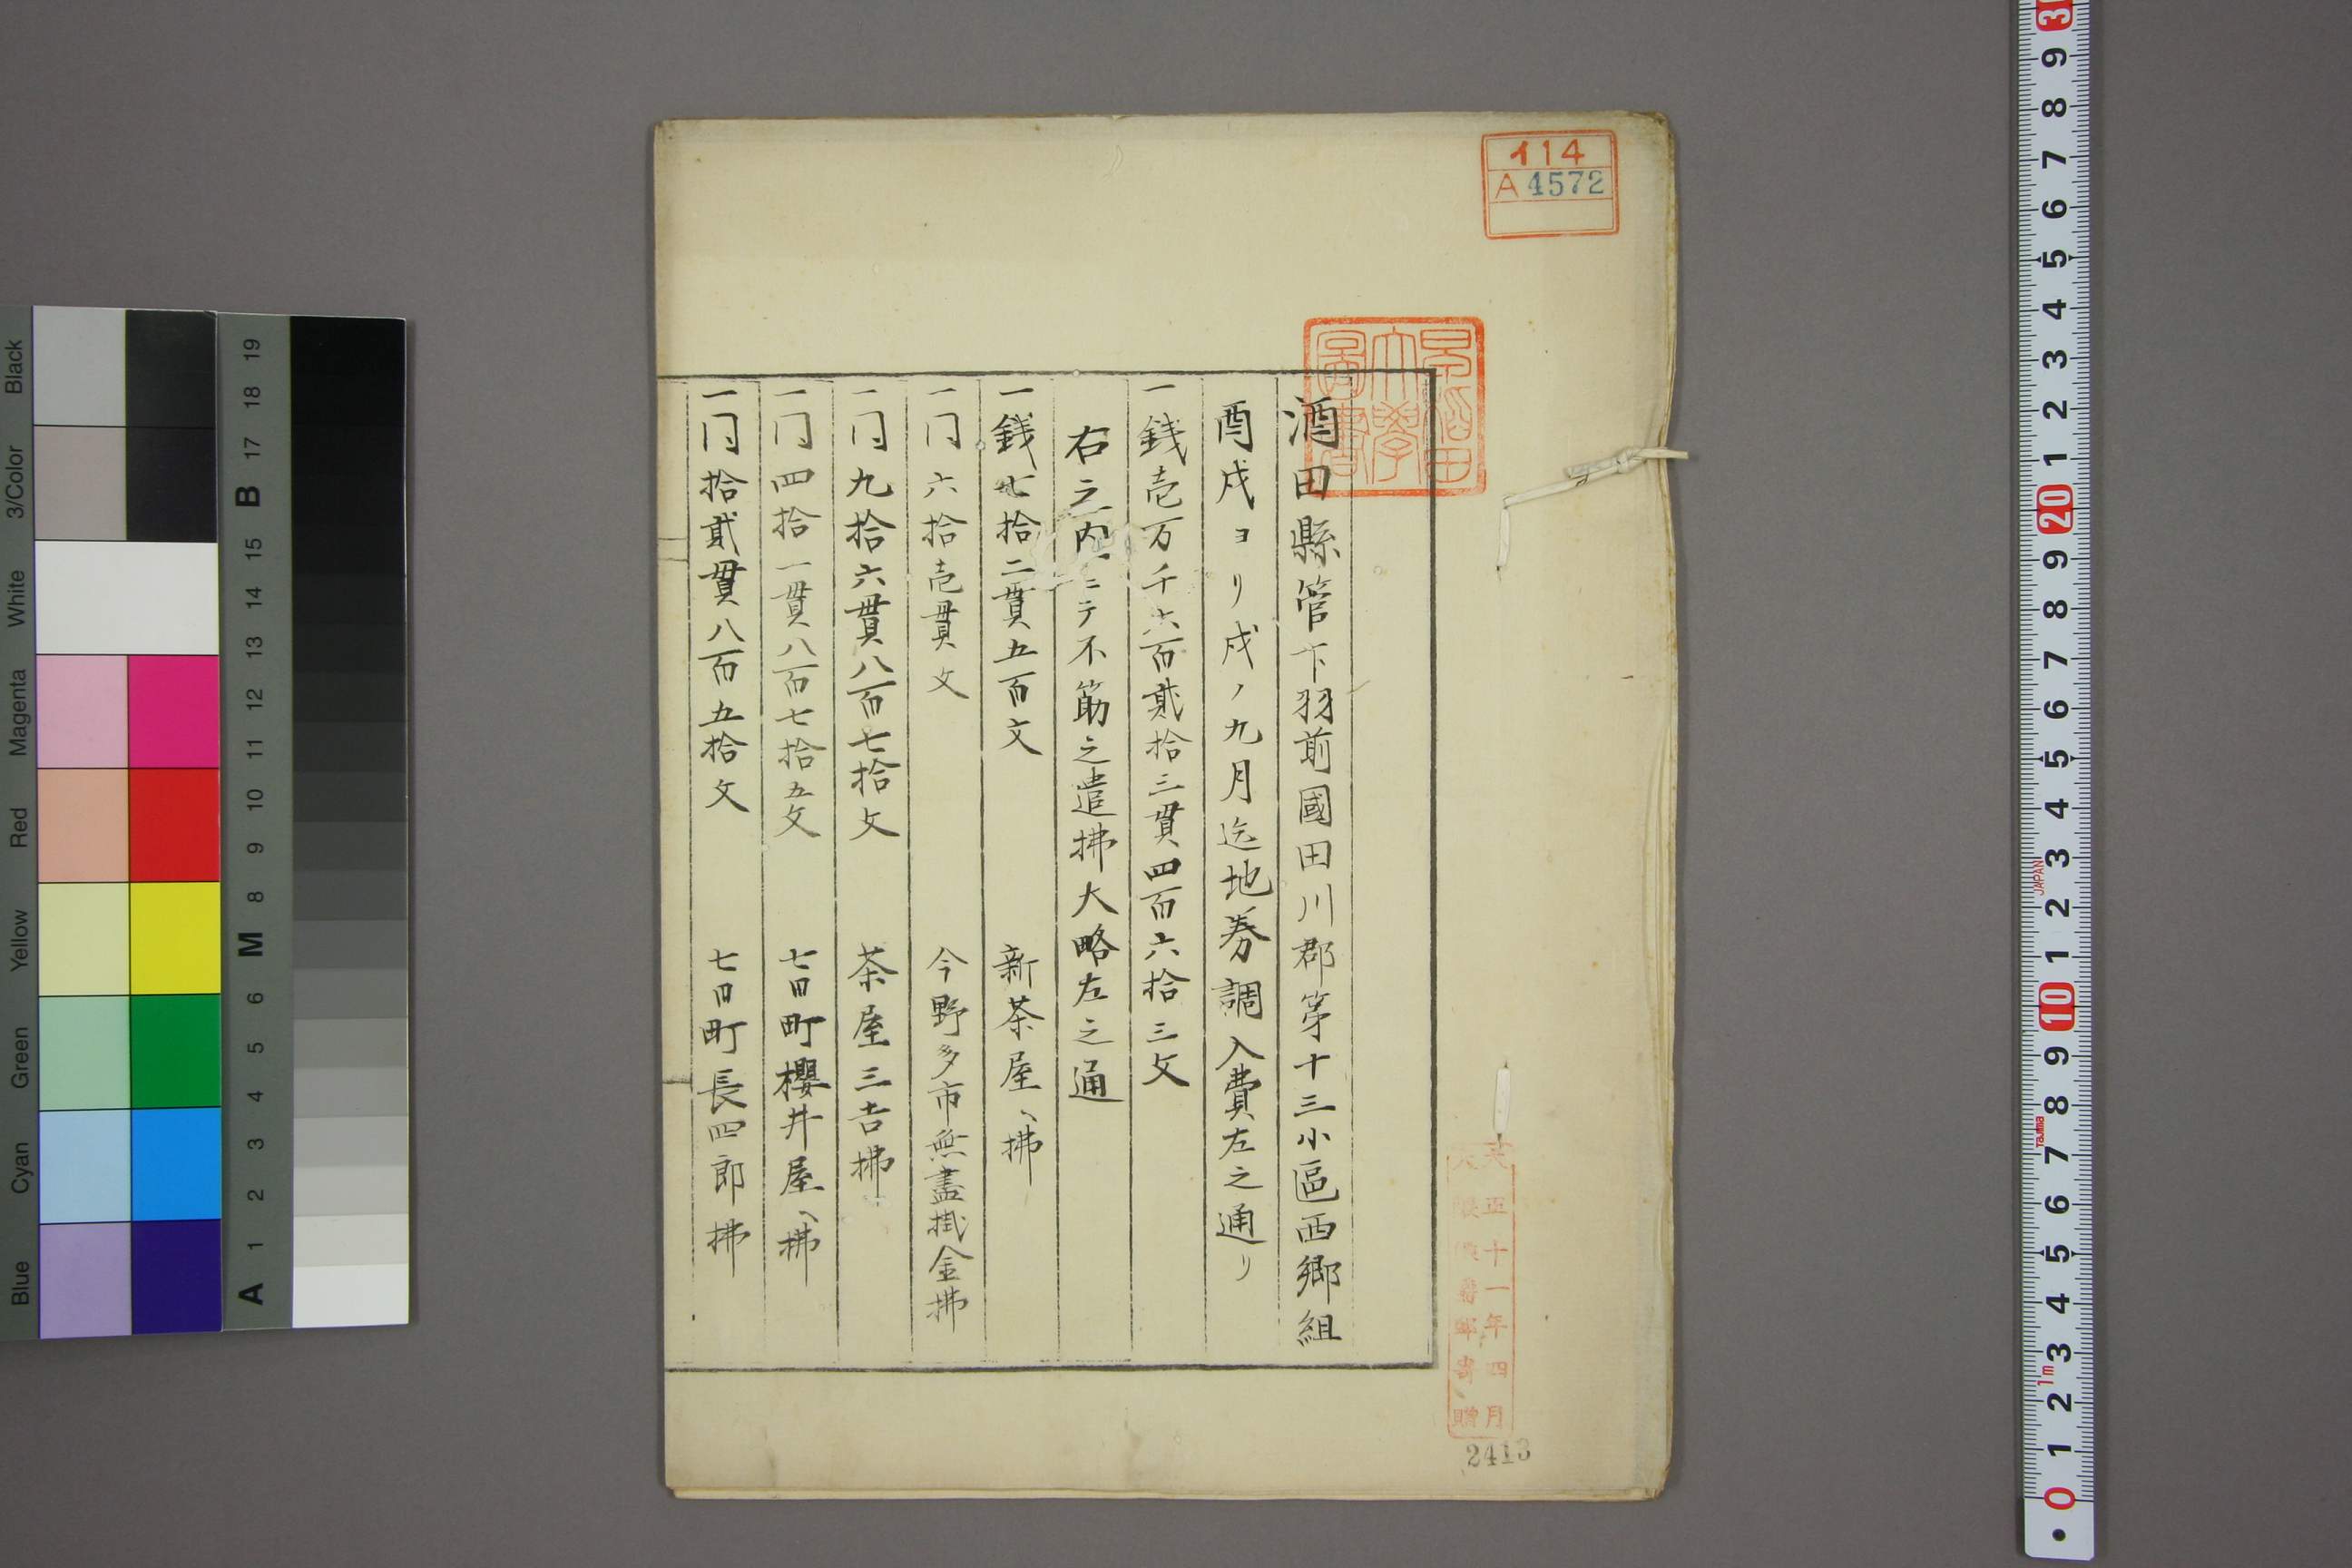 酒田縣管下羽前國田川郡第十三小區西郷組
酉戌ヨリ戌ノ九月迄地券調入費左之通リ
一銭壱万千六百貮拾三貫四百六拾三文
右之内ニテ不筋之遣拂大略左之通
一銭七拾二貫五百文 新茶屋ヘ拂
一〃六拾壱貫文 今野多市無盡掛金拂
一〃九拾六貫八百七拾文 茶屋三吉拂
一〃四拾一貫八百七拾五文 七日町櫻井屋ヘ拂
一〃拾貮貫八百五拾文 七日町長四郎拂
イ14
A 4572
早稲田大學圖書
大正十一年四月
寄贈
2413
Blue Cyan Green Yellow Red Magenta White 3/Color Black
A 1 2 3 4 5 6 M 8 9 10 11 12 13 14 15 B 17 18 19
0 1 2 3 4 5 6 7 8 9 10 1 2 3 4 5 6 7 8 9 20 1 2 3 4 5 6 7 8 9 3
1m Tajima JAPAN